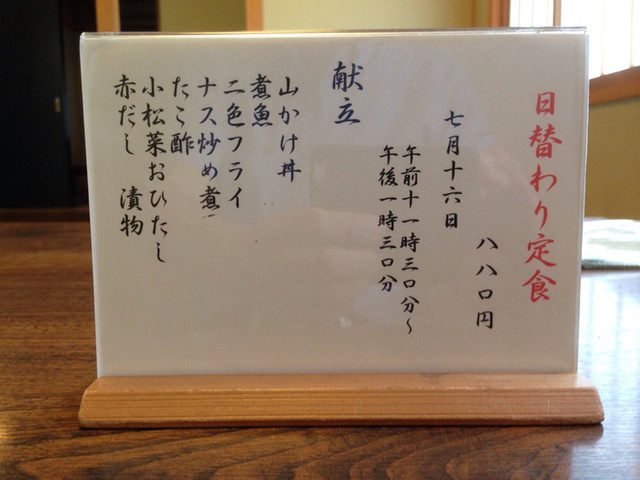 日替わり定食
八八〇円
七月十六日
午前十一時三〇分～
午後一時三〇分
献立
山かけ丼
煮魚
二色フライ
ナス炒め煮
たこ酢
小松菜おひたし
赤だし　漬物